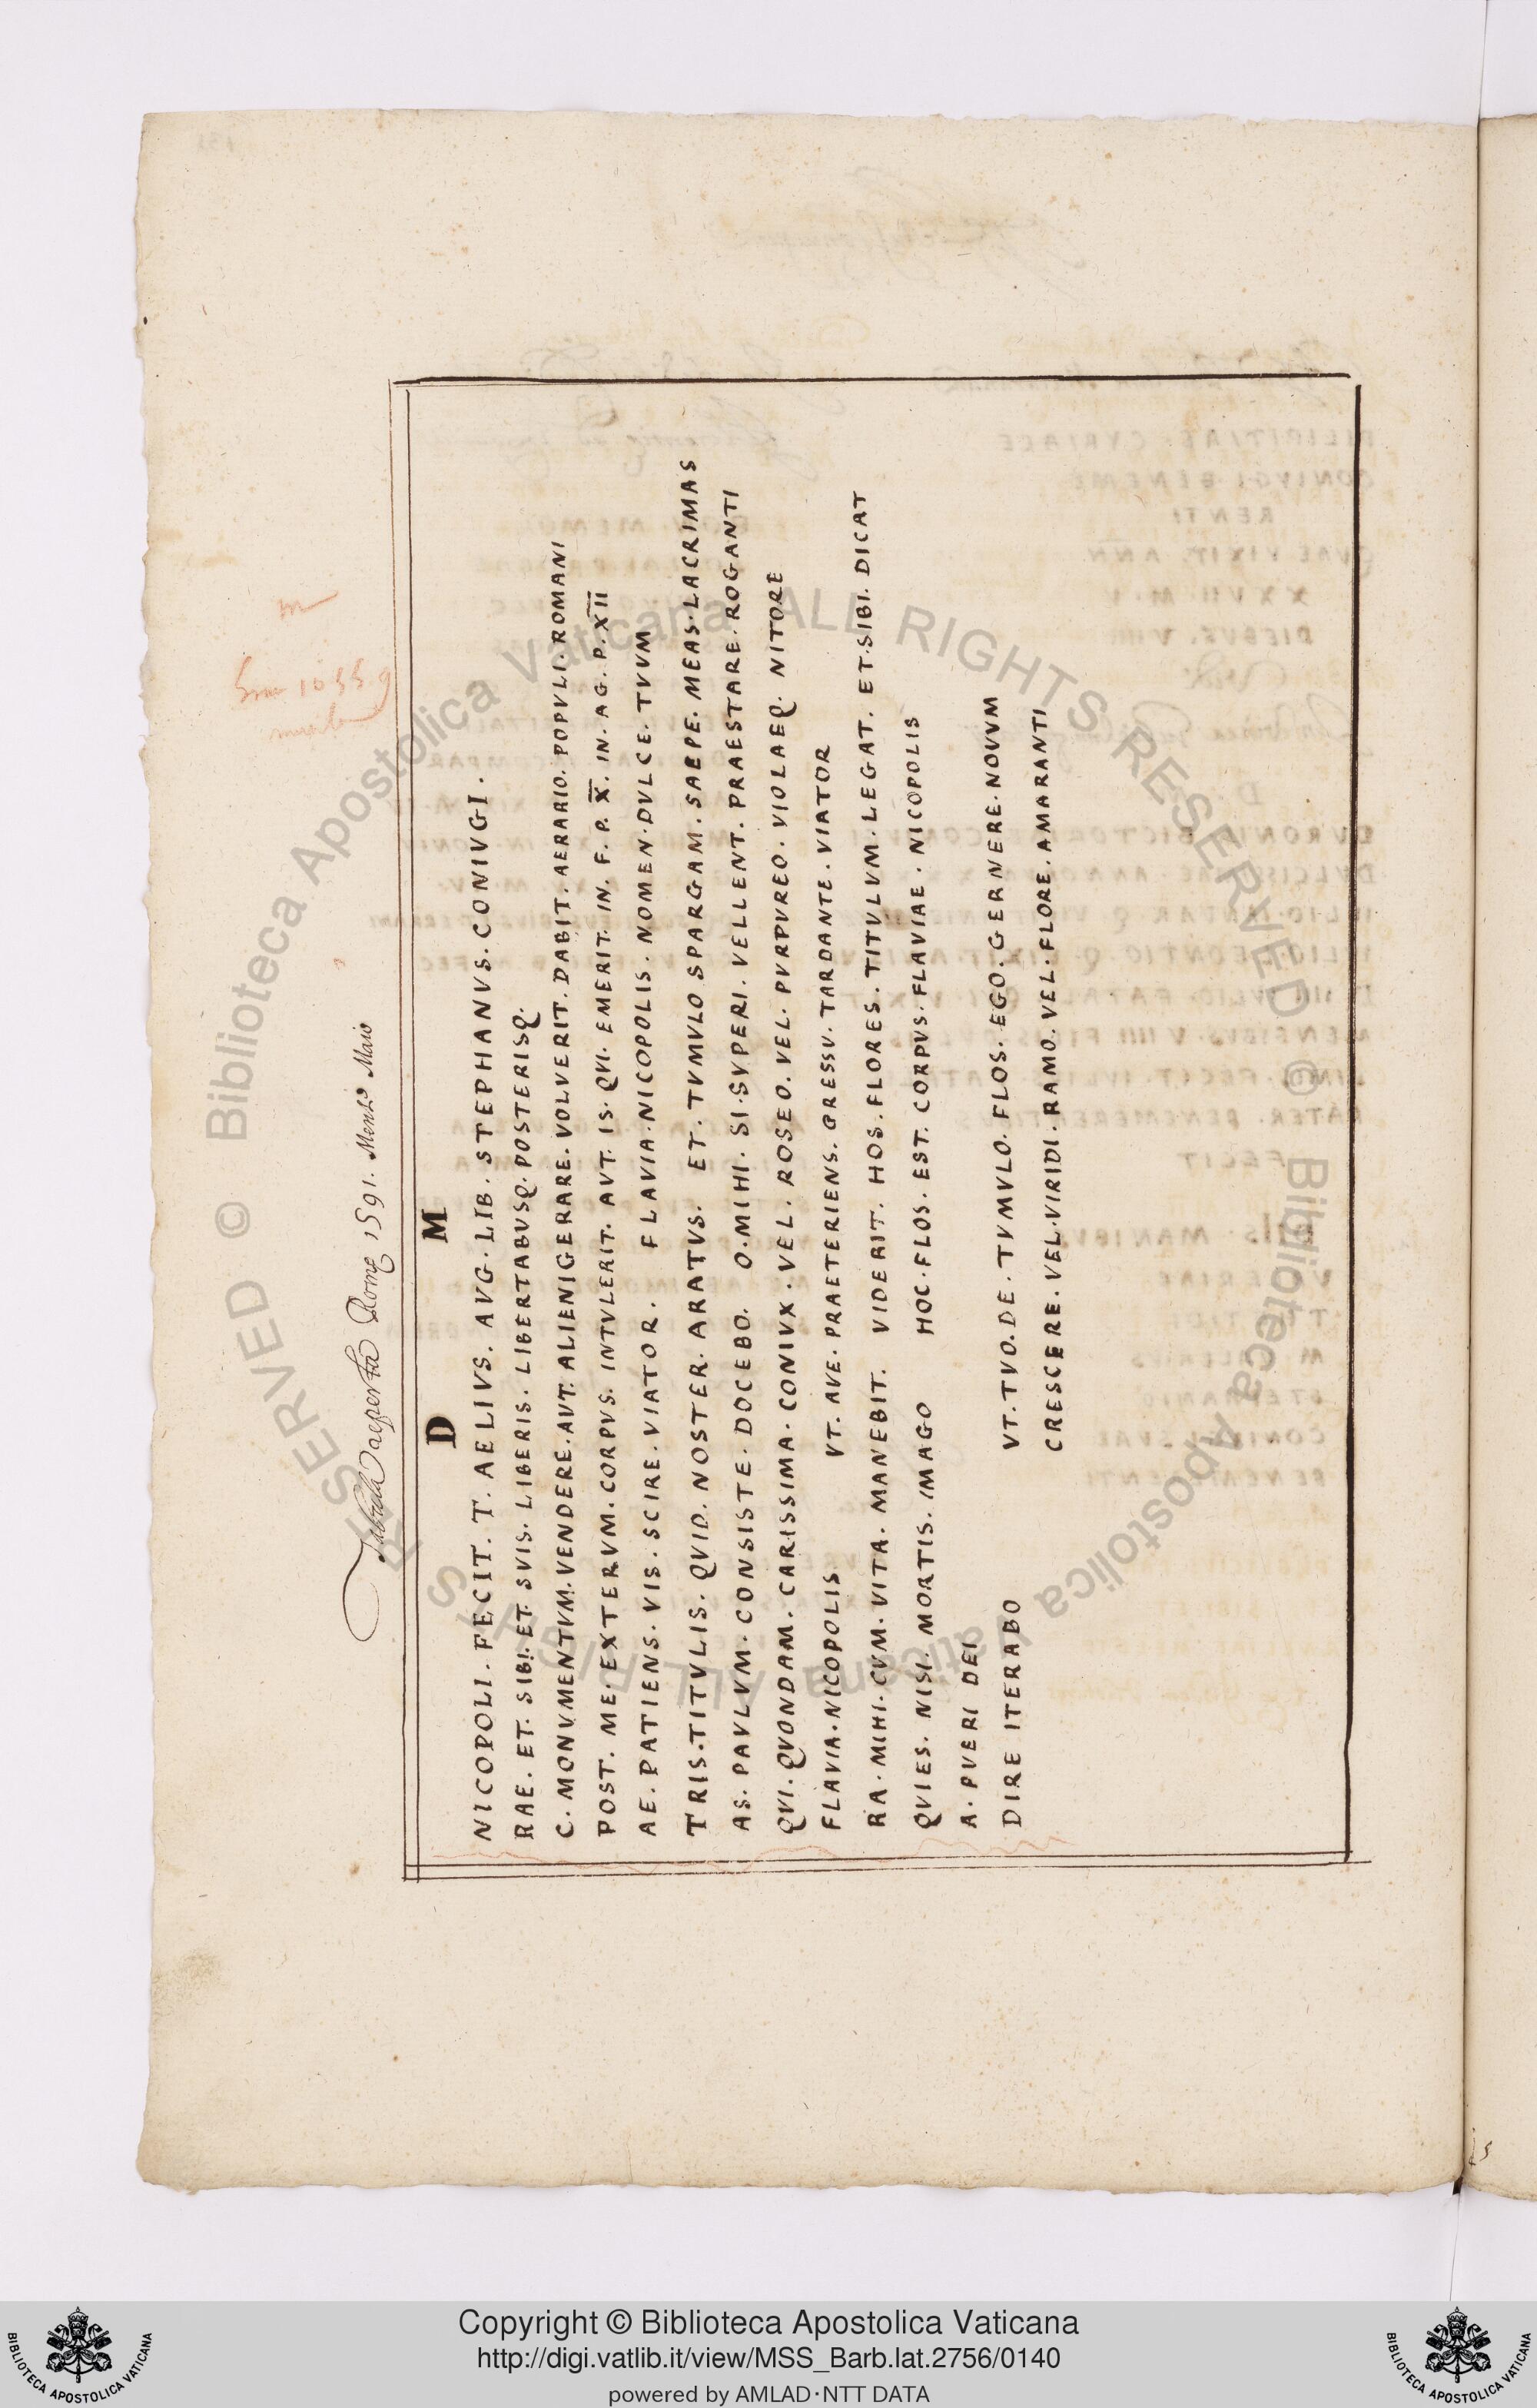 Tabula aeperta Rome 1591. Mens Maio
D M
NICOPOLI. FECIT. T. AELIVS. AVG. LIB. STEPHANVS. CONIVGI.
RAE. ET. SIBI. ET. SVIS. LIBERIS. LIBERTABVSQ. POSTERISQ.
C. MONVMENTVM. VENDERE. AVT. ALIENIGERARE. VOLVERIT. DABIT. AERARIO. POPVLI. ROMANI
POST. ME. EXTERVM. CORPVS. INTVLERIT. AVT. IS. QVI. EMERIT. IN. F. P. X̅. IN. AG. P. XI̅I̅
AE. PATIENS. VIS. SCIRE. VIATOR. FLAVIA. NICOPOLIS. NOMEN. DVLCE. TVVM
TRIS. TITVLIS. QVID. NOSTER. ARATVS. ET. TVMVLO SPARGAM. SAEPE. MEAS. LACRIMAS
AS. PAVLVM. CONSISTE. DOCEBO. O. MIHI. SI. SVPERI. VELLENT. PRAESTARE. ROGANTI
QVI. QVONDAM. CARISSIMA. CONIVX. VEL. ROSEO. VEL. PVRPVREO. VIOLAEQ. NITORE
FLAVIA. NICOPOLIS. VT. AVE. PRAETERIENS. GRESSV. TARDANTE. VIATOR
RA. MIHI. CVM. VITA. MANEBIT. VIDERIT. HOS. FLORES. TITVLVM. LEGAT. ET. SIBI. DICAT
QVIES. NISI. MORTIS. IMAGO HOC. FLOS. EST. CORPVS. FLAVIAE. NICOPOLIS
A. PVERI DEI
DIRE ITERABO VT. TVO. DE. TVMVLO. FLOS. EGO. GERNERE. NOVVM
CRESCERE. VEL. VIRIDI. RAMO. VEL. FLORE. AMARANTI
Copyright © Biblioteca Apostolica Vaticana
http://digi.vatlib.it/view/MSS_Barb.lat.2756/0140
powered by AMLAD·NTT DATA
BIBLIOTECA APOSTOLICA VATICANA
BIBLIOTECA APOSTOLICA VATICANA
© Biblioteca Apostolica Vaticana ALL RIGHTS RESERVED © Biblioteca Apostolica Vaticana ALL RIGHTS RESERVED